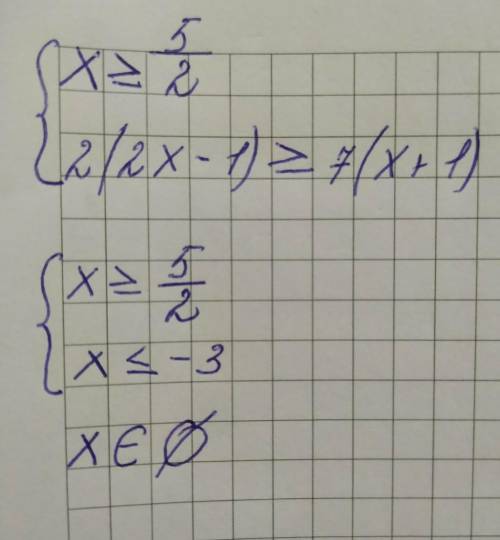 { x ≥ 5/2
2(2x - 1) ≥ 7(x + 1)
{ x ≥ 5/2
x ≤ -3
x ∈ ∅